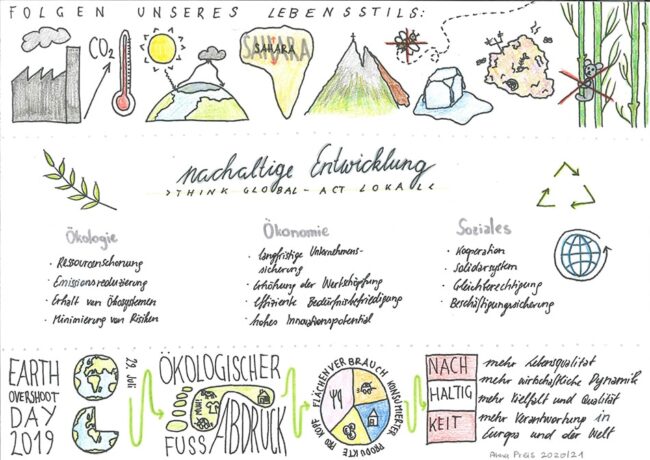 FOLGEN UNSERES LEBENSSTILS:
CO₂
SAHARA
SAHARA
nachaltige Entwicklung
>THINK GLOBAL - ACT LOKAL<
Ökologie
· Ressourcenschonung
· Emissionsreduzierung
· Erhalt von Ökosystemen
· Minimierung von Risiken
Ökonomie
· langfristige Unternehmens-
sicherung
· Erhöhung der Wertschöpfung
· Effiziente Bedürfnisbefriedigung
· hohes Innovationspotential
Soziales
· Kooperation
· Solidarsystem
· Gleichberechtigung
· Beschäftigungssicherung
EARTH
OVERSHOOT
DAY
2019
29. Juli
ÖKOLOGISCHER
FUSS
ABDRUCK
FLÄCHENVERBRAUCH KONSUMIERTER PRODUKTE PRO KOPF
NACH
HALTIG
KEIT
mehr Lebensqualität
mehr wirtschaftliche Dynamik
mehr Vielfalt und Qualität
mehr Verantwortung in
Europa und der Welt
Anna Preis 2020/21